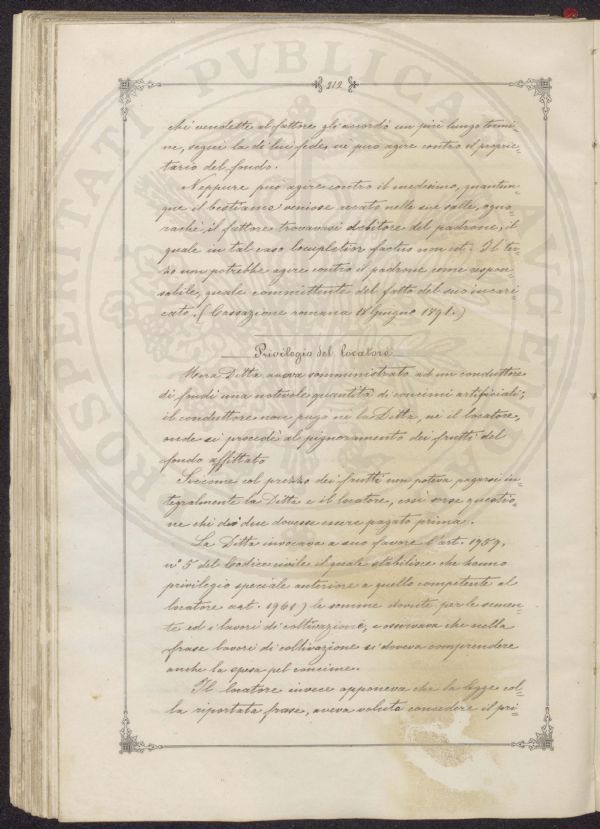 212
chi vendette al fattore gli accordò un più lungo termi=
ne, seguì la di lui fede, ne può agire contro il proprie=
tario del fondo.
Neppure può agire contro il medesimo, quantun=
que il bestiame venisse usato nelle sue stalle, ogno=
rachè il fattore trovavasi debitore del padrone, il
quale in tal caso locupletior factus non est. Il ter=
zo non potrebbe agire contro il padrone come respon=
sabile, quale committente del fatto del suo incari=
cato. (Cassazione romana 18 Giugno 1891.)
Privilegio del locatore
Una Ditta aveva somministrato ad un conduttore
di fondi una notevole quantità di concimi artificiali;
il conduttore non pagò nè la Ditta, nè il locatore,
onde si procedè al pignoramento dei frutti del
fondo affittato
Siccome col prezzo dei frutti non poteva pagarsi in=
tegralmente la Ditta e il locatore, così sorse questio=
ne chi dei due dovesse essere pagato prima.
La Ditta invocava a suo favore l'art. 1959,
n° 5 del Codice civile il quale stabilisce che hanno
privilegio speciale anteriore a quello competente al
locatore art. 1961) le somme dovute per le semen=
te ed i lavori di coltivazione, e osservava che nella
frase lavori di coltivazione si doveva comprendere
anche la spesa pel concime.
Il locatore invece opponeva che la legge col=
la riportata frase, aveva voluto concedere il pri=
ROSPERITATI PVBLICAE AVGENDAE